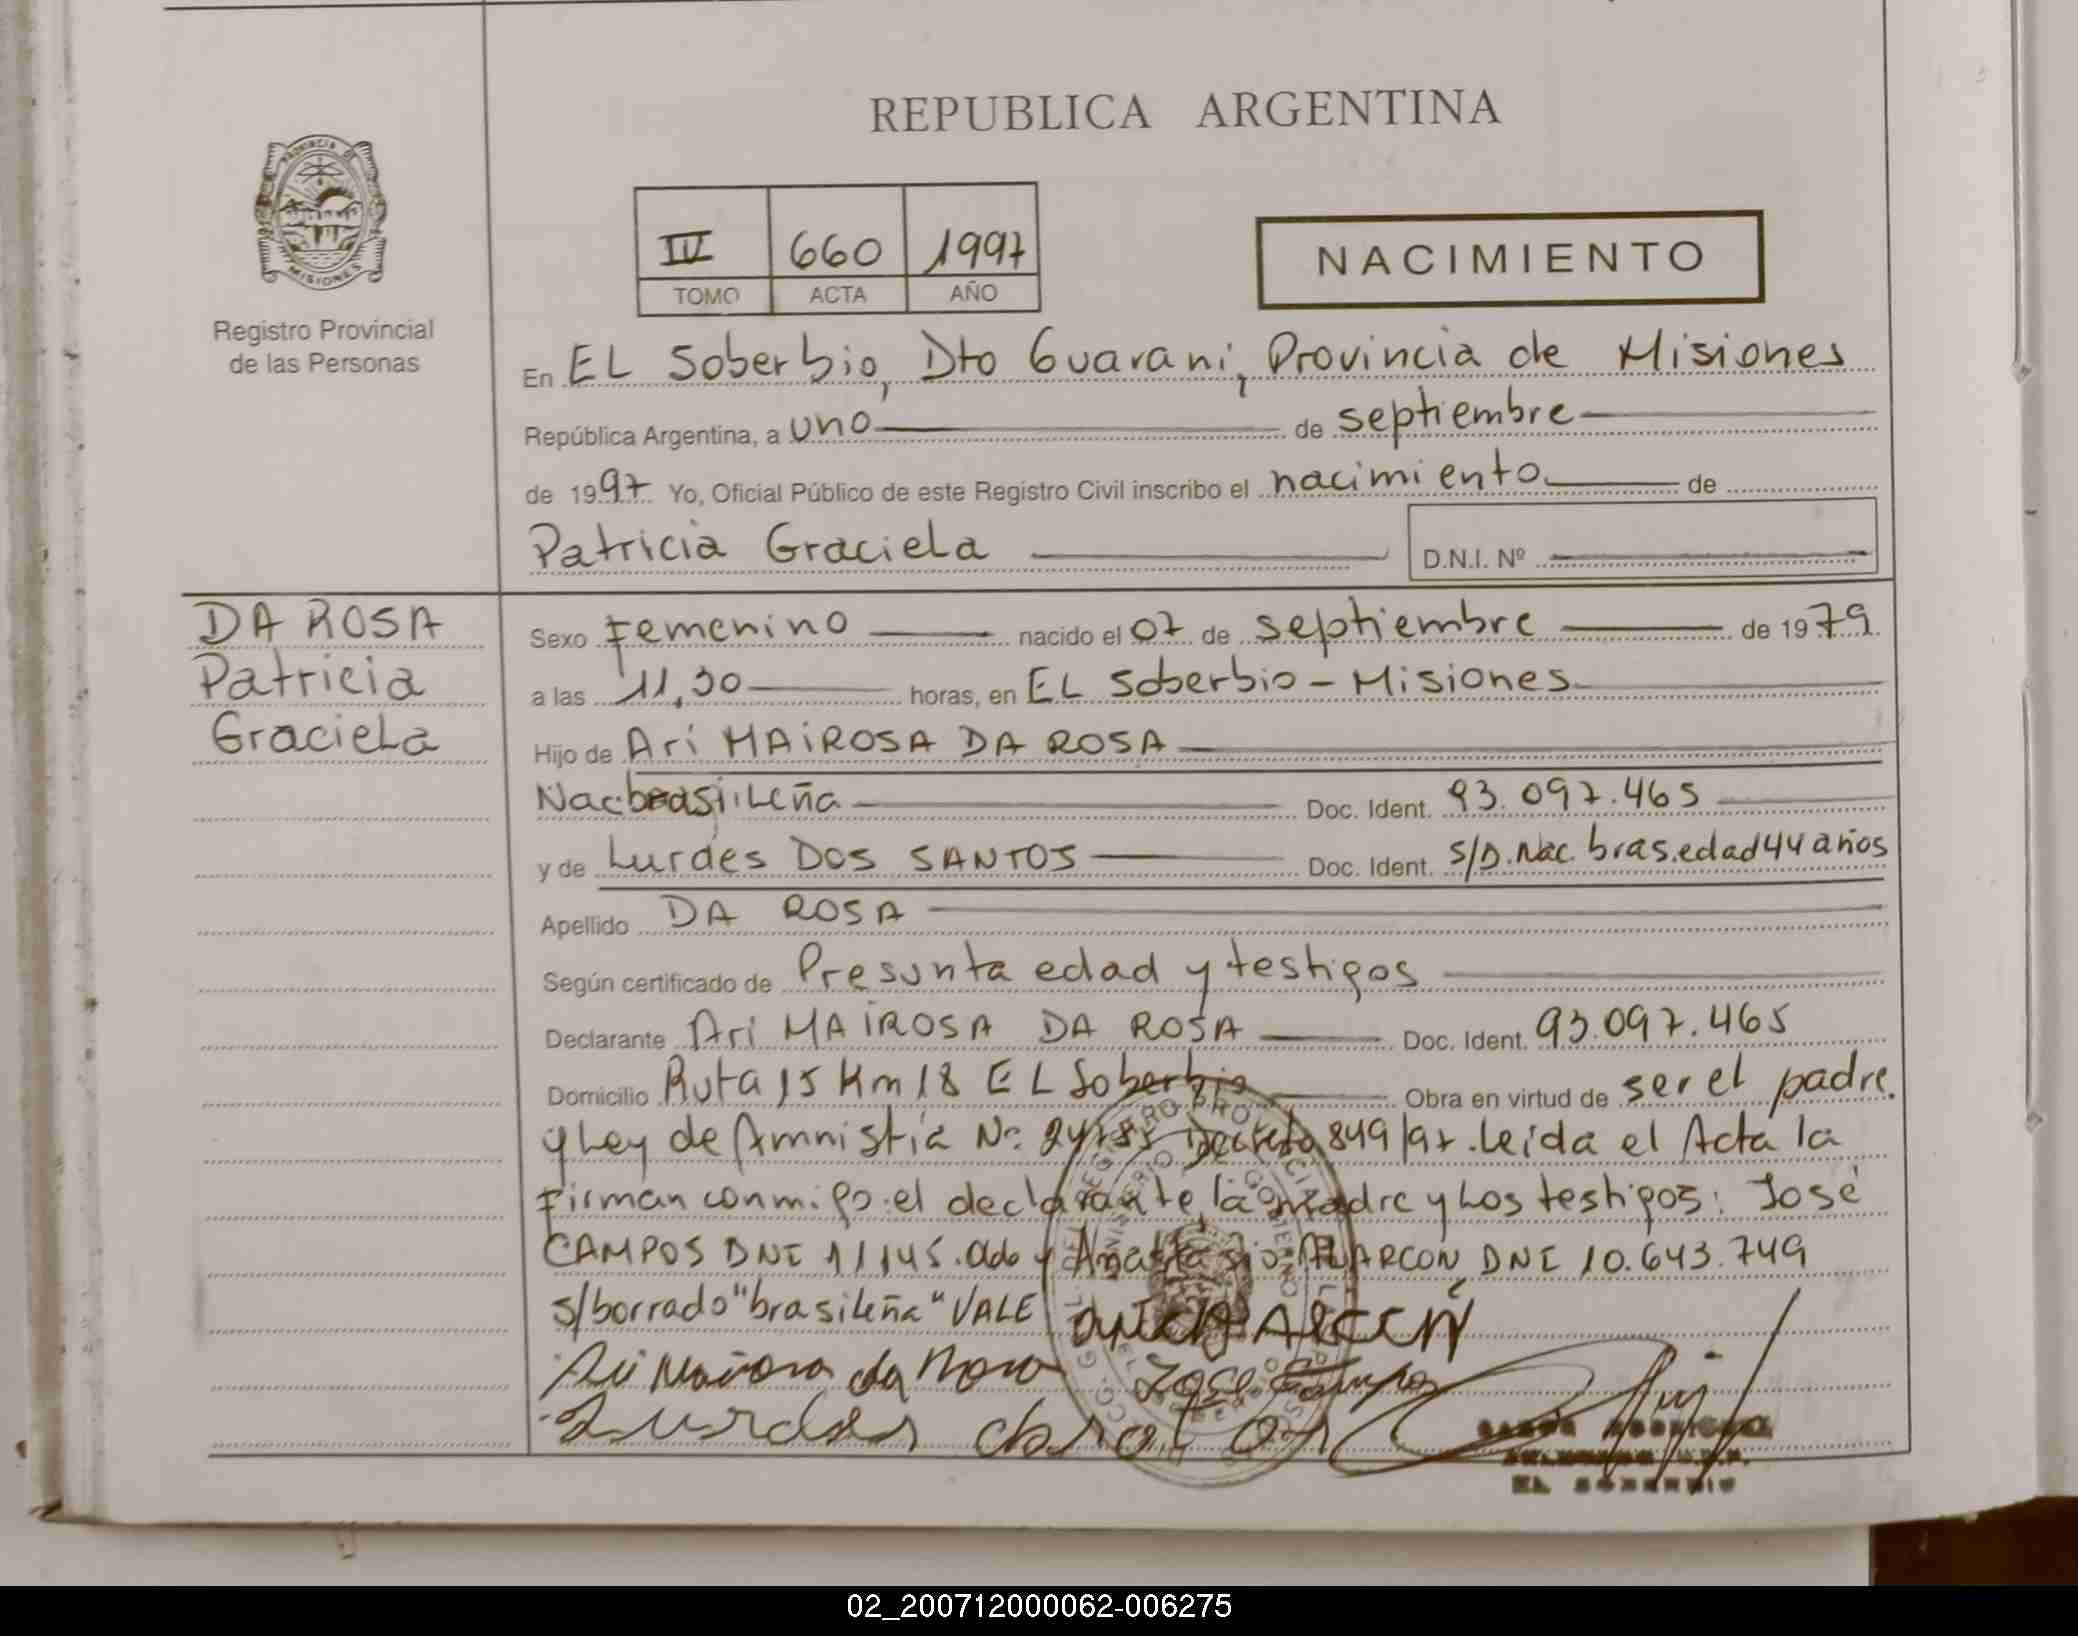 REPUBLICA ARGENTINA
PROVINCIA DE
MISIONES
Registro Provincial
de las Personas
IV 660 1997
TOMO ACTA AÑO
NACIMIENTO
En EL Soberbio, Dto Guarani, Provincia de Misiones
República Argentina, a uno de septiembre
de 1997 Yo, Oficial Público de este Registro Civil inscribo el nacimiento de
Patricia Graciela D.N.I. Nº
DA ROSA
Patricia
Graciela
Sexo Femenino nacido el 07 de septiembre de 1979
a las 11,30 horas, en EL Soberbio - Misiones
Hijo de Ari MAIROSA DA ROSA
Nac. brasileña Doc. Ident. 93.097.465
y de Lurdes DOS SANTOS Doc. Ident. S/D. Nac. bras. edad 44 años
Apellido DA ROSA
Según certificado de Presunta edad y testigos
Declarante Ari MAIROSA DA ROSA Doc. Ident. 93.097.465
Domicilio Ruta 15 Km 18 EL Soberbio Obra en virtud de ser el padre.
y Ley de Amnistia Nº Decreto 849/97. Leida el Acta la
Firman conmigo: el declarante, la madre y Los testigos: José
CAMPOS DNI y Anastasio ALARCON DNI 10.643.749
s/borrado "brasileña" VALE
Ari Mairosa da Rosa
Jose Campos
Lurdes
EL SOBERBIO
02_200712000062-006275